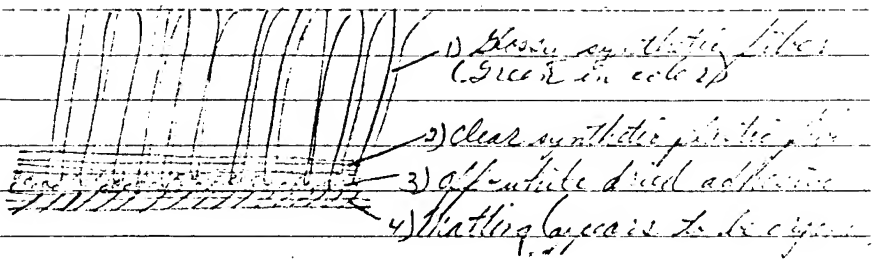 1) Glossy synthetic fiber
(Green in color)
2) clear synthetic plastic
3) off-white dried adhesive
4) Matting (appears to be